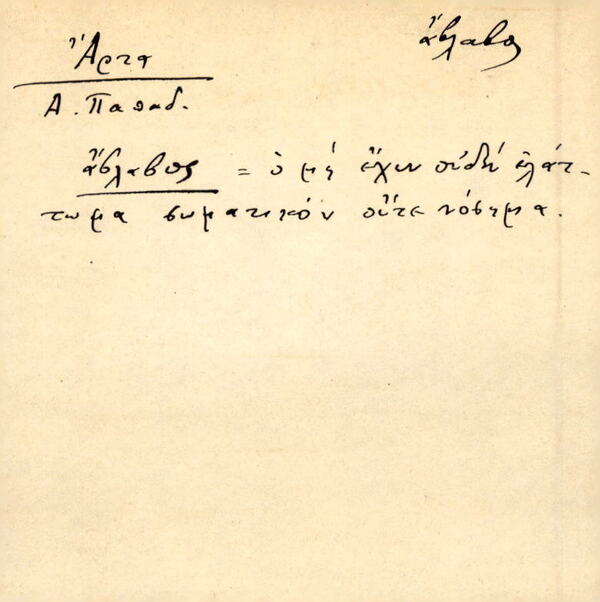 Ἄρτα
ἄβλαβος
Α. Παπαδ.
ἄβλαβος = ὁ μή ἔχων οὐδέν ἐλάτ-
τωμα σωματικόν οὔτε νόσημα.